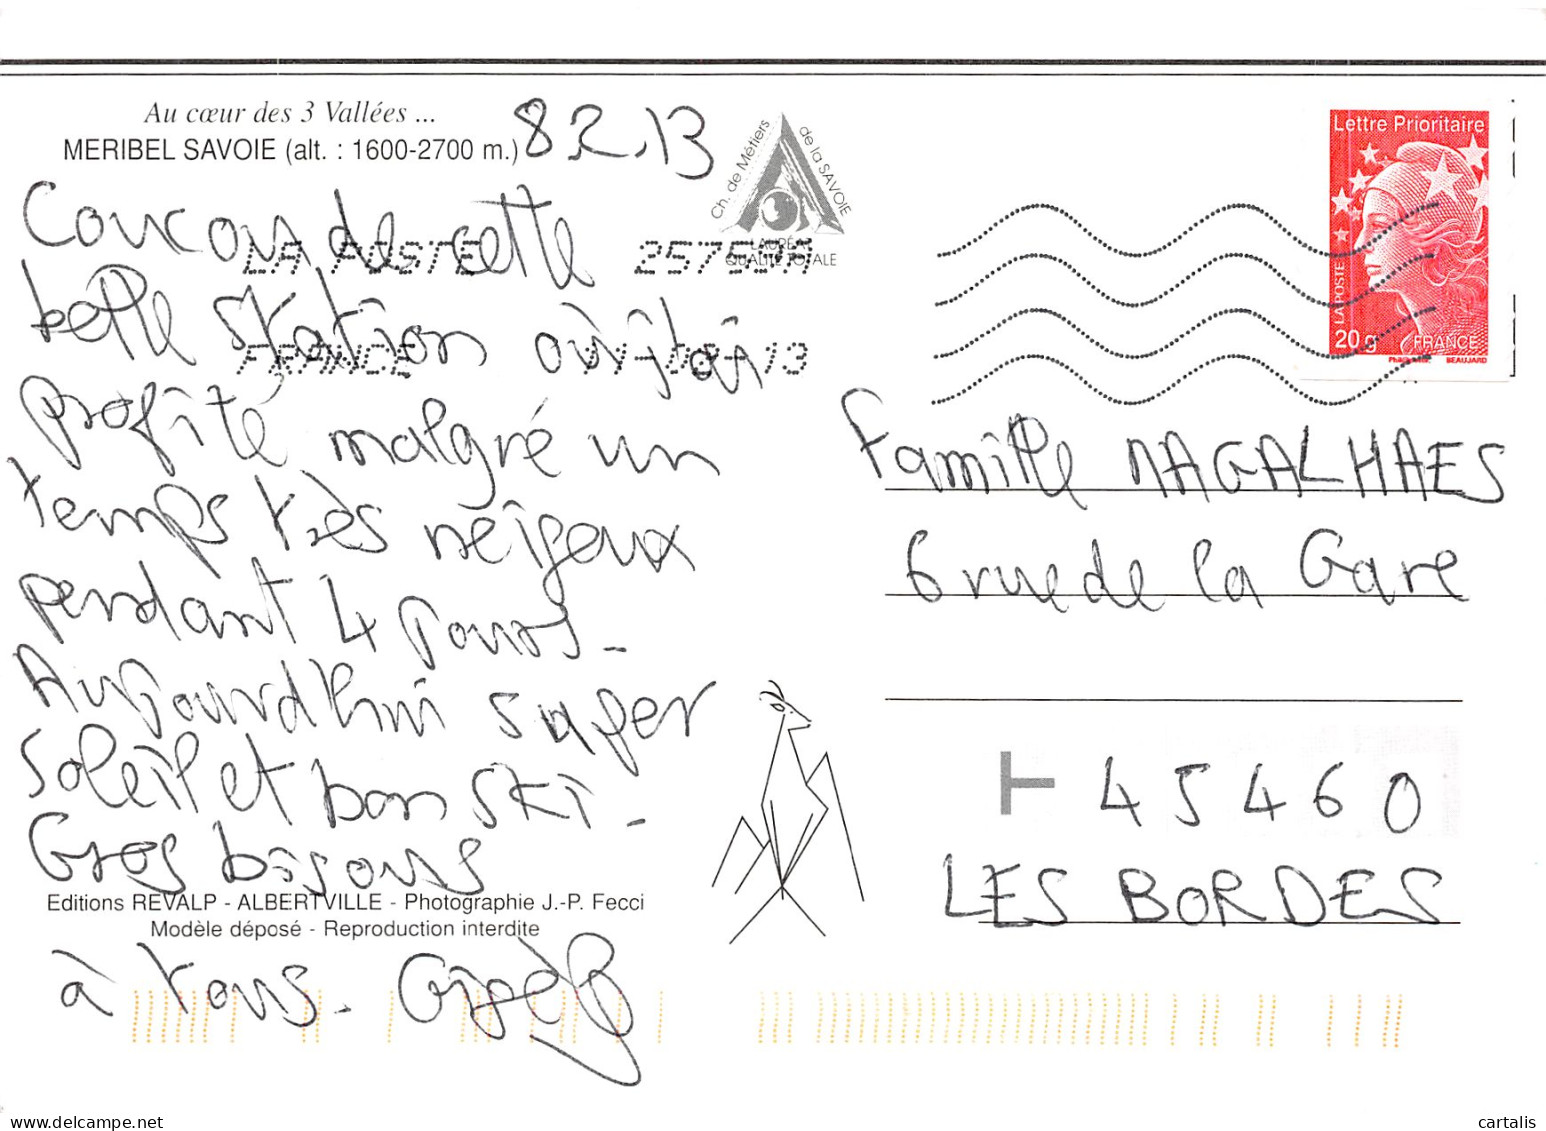 Au cœur des 3 Vallées ...
MERIBEL SAVOIE (alt. : 1600-2700 m.)
8.2.13
Ch. de Métiers de la SAVOIE
LAURÉAT
QUALITÉ TOTALE
Lettre Prioritaire
LA POSTE
20 g
FRANCE
BEAUJARD
LA POSTE
FRANCE
Coucou de cette
belle station où j'ai
profité malgré un
temps très neigeux
pendant 4 jours.
Aujourd'hui super
soleil et bon SKI.
Gros bisous
Editions REVALP - ALBERTVILLE - Photographie J.-P. Fecci
Modèle déposé - Reproduction interdite
à tous.
Famille MAGALHAES
6 rue de la Gare
T 45460
LES BORDES
cartalis